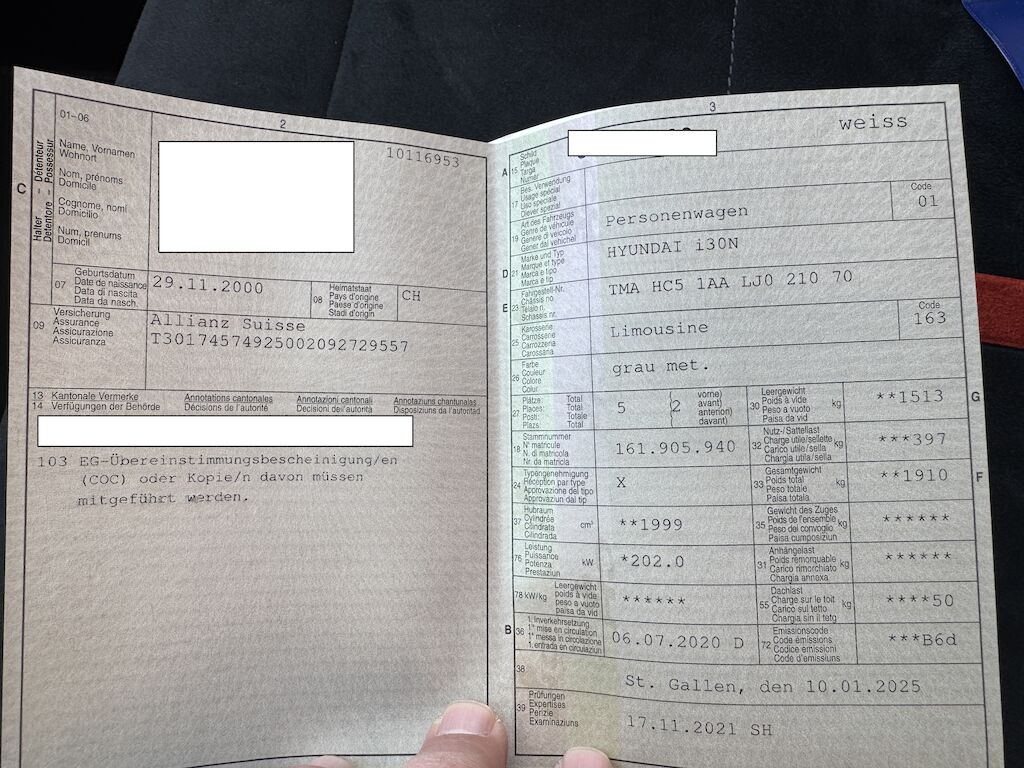 2
01-06
C
Halter – Détenteur
Detentore – Possessur
Name, Vornamen
Wohnort
Nom, prénoms
Domicile
Cognome, nomi
Domicilio
Num, prenums
Domicil
10116953
07
Geburtsdatum
Date de naissance
Data di nascita
Data da nasch.
29.11.2000
08
Heimatstaat
Pays d'origine
Paese d'origine
Stadi d'origin
CH
09
Versicherung
Assurance
Assicurazione
Assicuranza
Allianz Suisse
T30174574925002092729557
13 Kantonale Vermerke Annotations cantonales Annotazioni cantonali Annotaziuns chantunalas
14 Verfügungen der Behörde Décisions de l'autorité Decisioni dell'autorità Disposiziuns da l'autoritad
103 EG-Übereinstimmungsbescheinigung/en
(COC) oder Kopie/n davon müssen
mitgeführt werden.
3
A 15
Schild
Plaque
Targa
Numer
weiss
17
Bes. Verwendung
Usage spécial
Uso speciale
Diever spezial
19
Art des Fahrzeugs
Genre de véhicule
Genere di veicolo
Gener dal vehichel
Personenwagen
Code
01
D 21
Marke und Typ
Marque et type
Marca e tipo
Marca e tip
HYUNDAI i30N
E 23
Fahrgestell-Nr.
Châssis no
Telaio n.
Schassis nr.
TMA HC5 1AA LJ0 210 70
25
Karosserie
Carrosserie
Carrozzeria
Carossaria
Limousine
Code
163
26
Farbe
Couleur
Colore
Colur
grau met.
27
Plätze: Total
Places: Total
Posti: Totale
Plazs: Total
5
(2
vorne)
avant)
anteriori)
davant)
30
Leergewicht
Poids à vide
Peso a vuoto
Paisa da vid
kg
**1513
G
18
Stammnummer
N° matricule
N. di matricola
Nr. da matricla
161.905.940
32
Nutz-/Sattellast
Charge utile/sellette
Carico utile/sella
Chargia utila/sella
kg
***397
24
Typengenehmigung
Réception par type
Approvazione del tipo
Approvaziun dal tip
X
33
Gesamtgewicht
Poids total
Peso totale
Paisa totala
kg
**1910
F
37
Hubraum
Cylindrée
Cilindrata
Cilindrada
cm³
**1999
35
Gewicht des Zuges
Poids de l'ensemble
Peso del convoglio
Paisa cumposiziun
kg
******
76
Leistung
Puissance
Potenza
Prestaziun
kW
*202.0
31
Anhängelast
Poids remorquable
Carico rimorchiato
Chargia annexa
kg
******
78 kW/kg
Leergewicht
poids à vide
peso a vuoto
paisa da vid
******
55
Dachlast
Charge sur le toit
Carico sul tetto
Chargia sin il tetg
kg
****50
B 36
1. Inverkehrsetzung
1re mise en circulation
1a messa in circolazione
1. entrada en circulaziun
06.07.2020 D
72
Emissionscode
Code émissions
Codice emissioni
Code d'emissiuns
***B6d
38
St. Gallen, den 10.01.2025
39
Prüfungen
Expertises
Perizie
Examinaziuns
17.11.2021 SH